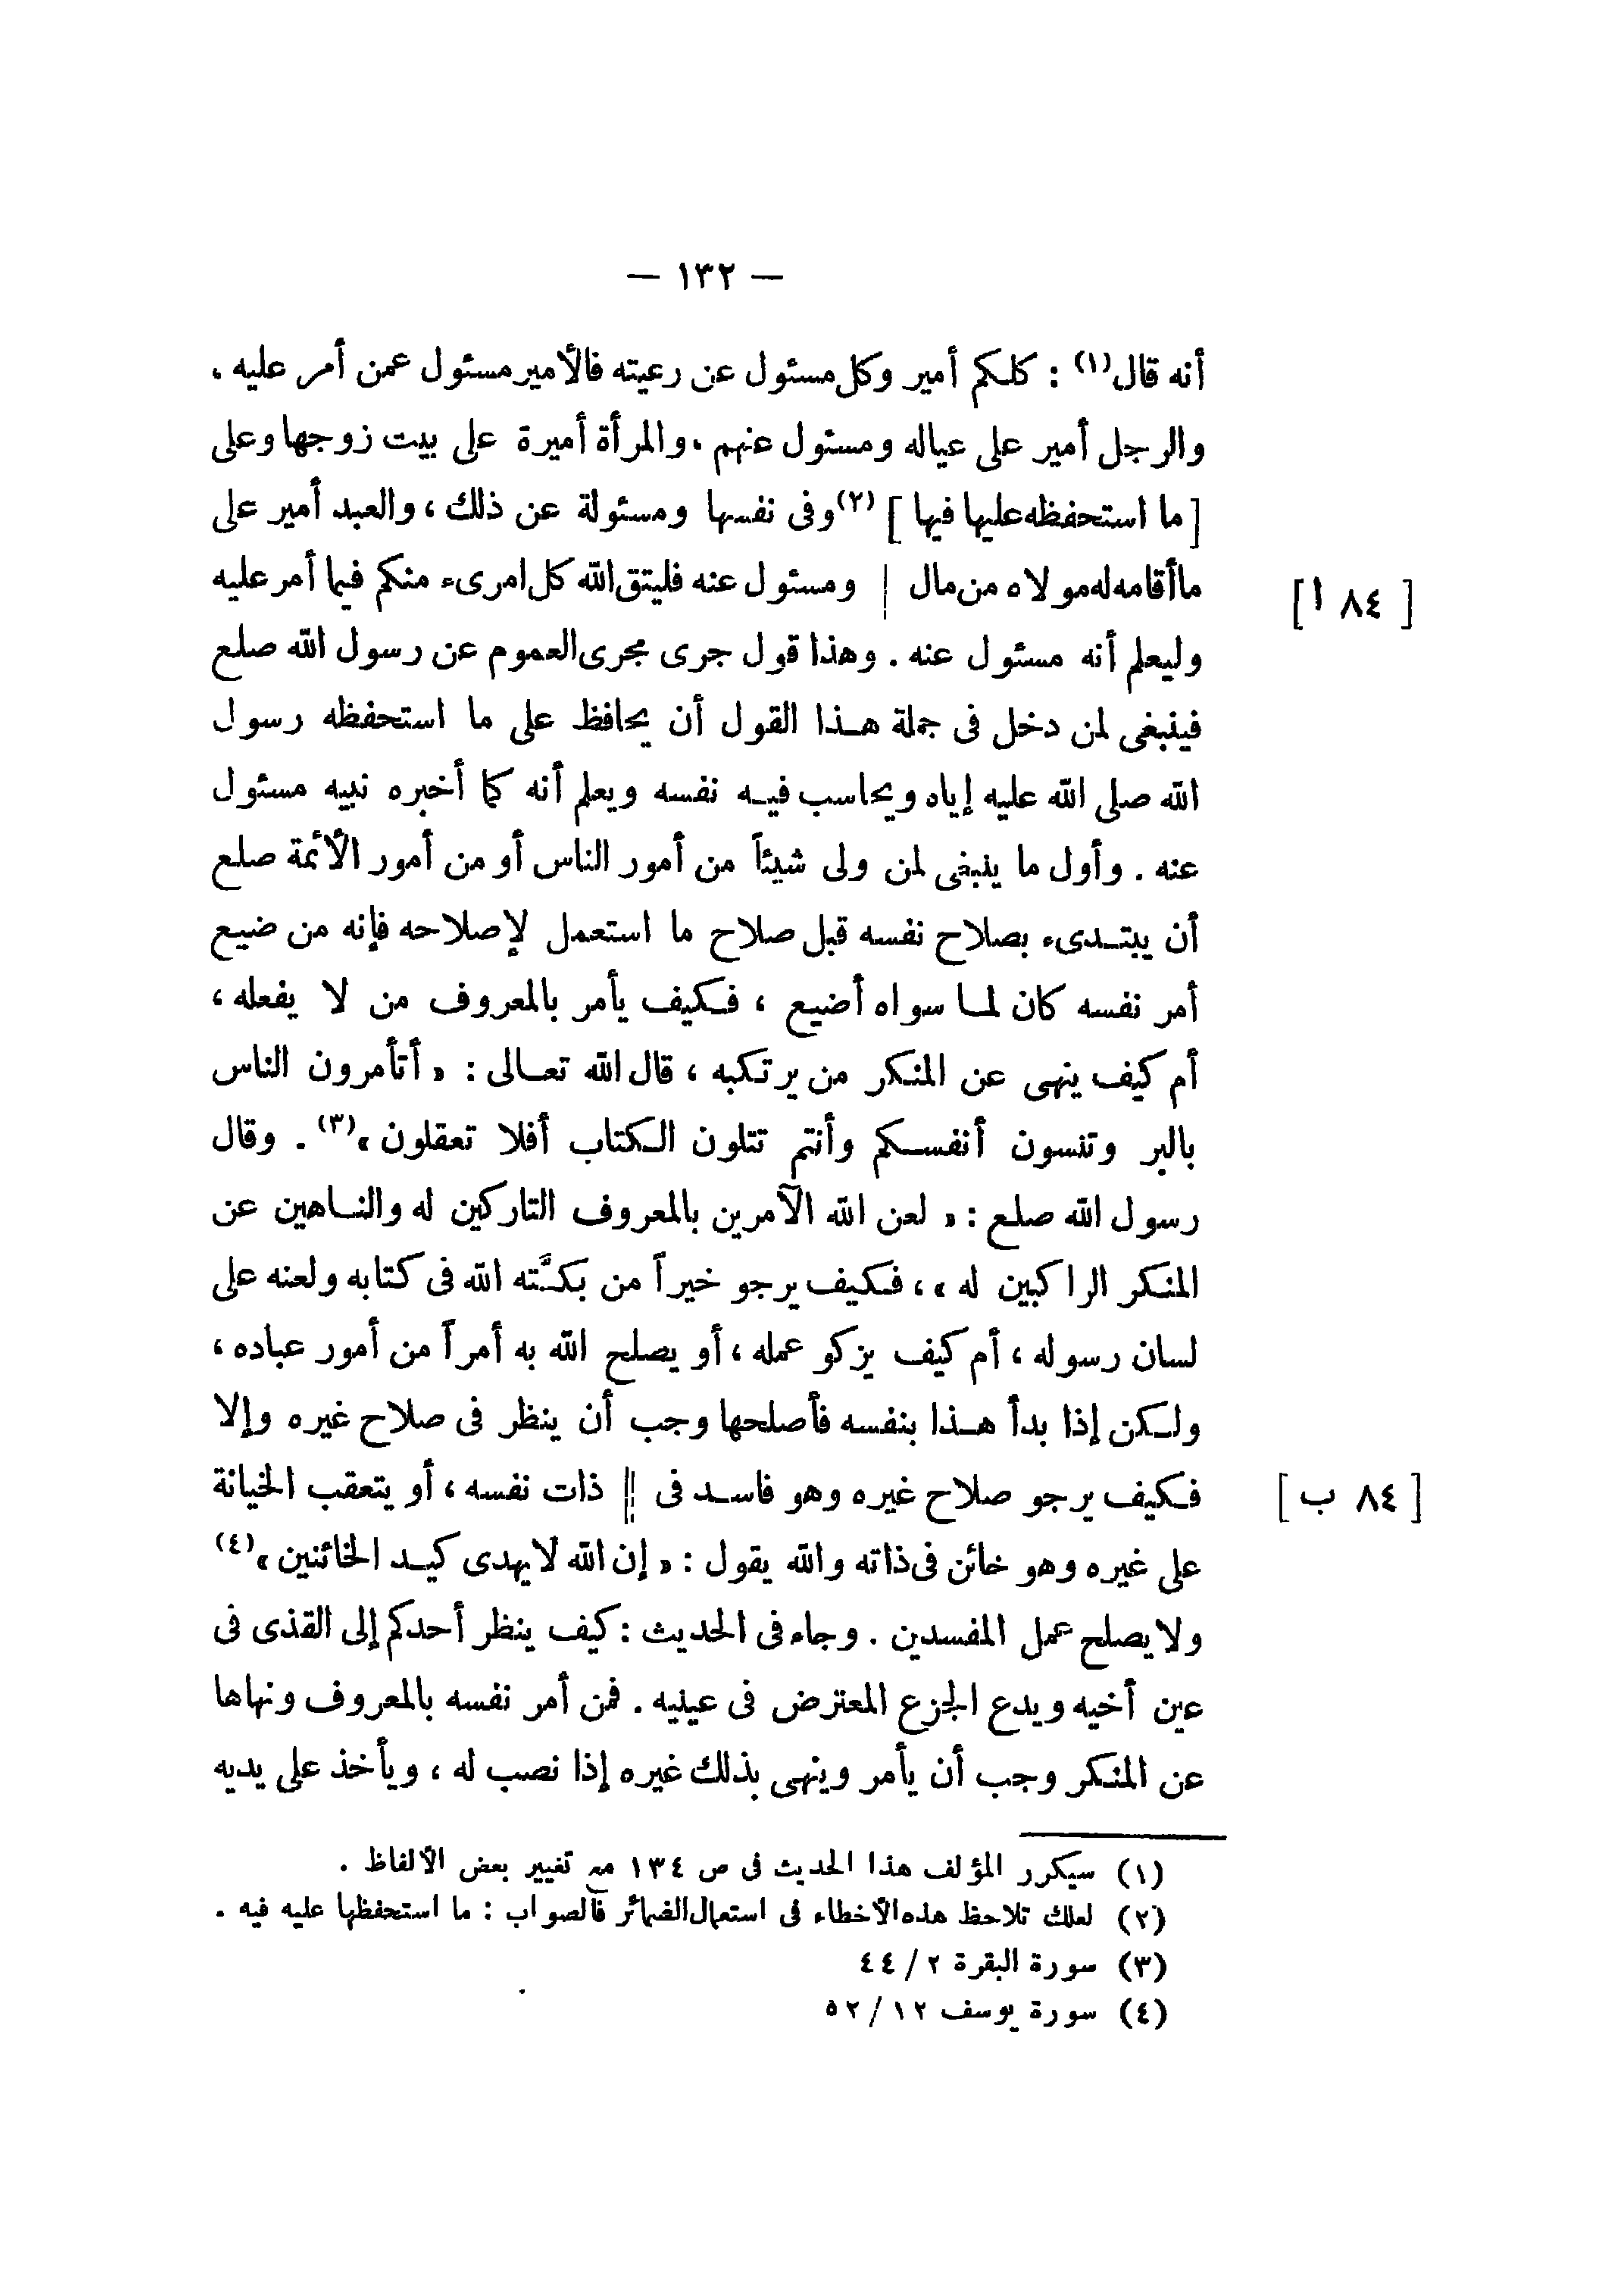 — ١٣٢ —
أنه قال(١) : كلكم أمير وكل مسئول عن رعيته فالأمير مسئول عمن أمر عليه ،
والرجل أمير على عياله ومسئول عنهم ، والمرأة أميرة على بيت زوجها وعلى
[ ما استحفظه عليها فيها ] (٢) وفى نفسها ومسئولة عن ذلك ، والعبد أمير على
ما أقامه له مولاه من مال | ومسئول عنه فليتق الله كل امرىء منكم فيما أمر عليه
[ ٨٤ ا ]
وليعلم أنه مسئول عنه . وهذا قول جرى مجرى العموم عن رسول الله صلع
فينبغى لمن دخل فى جملة هذا القول أن يحافظ على ما استحفظه رسول
الله صلى الله عليه إياه ويحاسب فيه نفسه ويعلم أنه كما أخبره نبيه مسئول
عنه . وأول ما ينبغى لمن ولى شيئاً من أمور الناس أو من أمور الأئمة صلع
أن يبتدىء بصلاح نفسه قبل صلاح ما استعمل لإصلاحه فإنه من ضيع
أمر نفسه كان لما سواه أضيع ، فكيف يأمر بالمعروف من لا يفعله ،
أم كيف ينهى عن المنكر من يرتكبه ، قال الله تعالى : « أتأمرون الناس
بالبر وتنسون أنفسكم وأنتم تتلون الكتاب أفلا تعقلون »(٣) . وقال
رسول الله صلع : « لعن الله الآمرين بالمعروف التاركين له والناهين عن
المنكر الراكبين له » ، فكيف يرجو خيراً من بكَّته الله فى كتابه ولعنه على
لسان رسوله ، أم كيف يزكو عمله ، أو يصلح الله به أمراً من أمور عباده ،
ولكن إذا بدأ هذا بنفسه فأصلحها وجب أن ينظر فى صلاح غيره وإلا
فكيف يرجو صلاح غيره وهو فاسد فى || ذات نفسه ، أو يتعقب الخيانة
[ ٨٤ ب ]
على غيره وهو خائن فى ذاته والله يقول : « إن الله لا يهدى كيد الخائنين »(٤)
ولا يصلح عمل المفسدين . وجاء فى الحديث : كيف ينظر أحدكم إلى القذى فى
عين أخيه ويدع الجزع المعترض فى عينيه . فمن أمر نفسه بالمعروف ونهاها
عن المنكر وجب أن يأمر وينهى بذلك غيره إذا نصب له ، ويأخذ على يديه
(١) سيكرر المؤلف هذا الحديث فى ص ١٣٤ مع تغيير بعض الألفاظ .
(٢) لعلك تلاحظ هذه الأخطاء فى استعمال الضمائر فالصواب : ما استحفظها عليه فيه .
(٣) سورة البقرة ٢ / ٤٤
(٤) سورة يوسف ١٢ / ٥٢